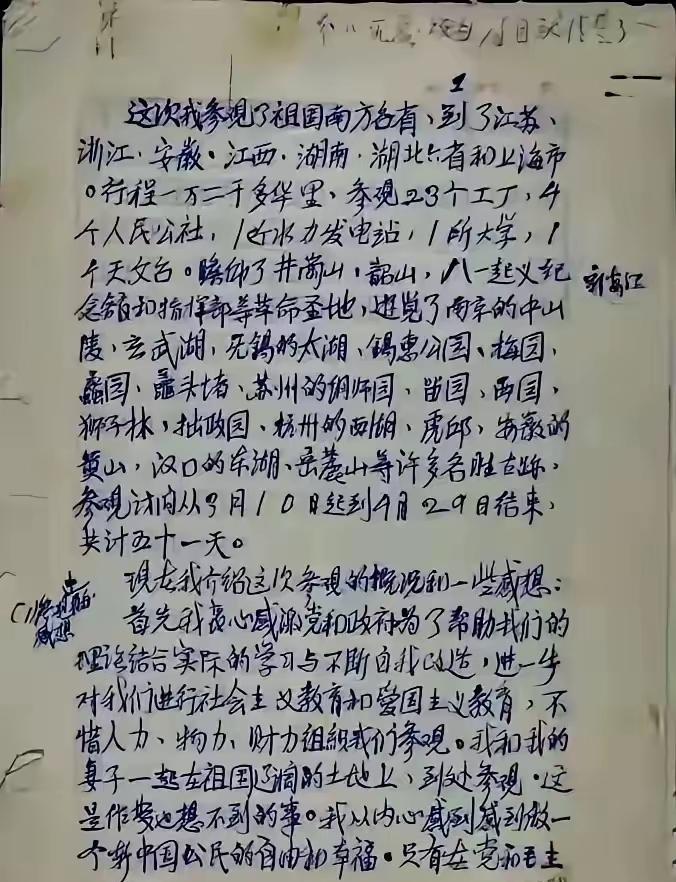 1
这次我参观了祖国南方各省、到了江苏、
浙江·安徽·江西·湖南·湖北六省和上海市
。行程一万二千多华里、参观23个工厂,4
个人民公社,1个水力发电站,1所大学,1
个天文台。瞻仰了井岗山,韶山,八一起义纪
念馆和指挥部等革命圣地,游览了南京的中山
陵,玄武湖,无锡的太湖、锡惠公园、梅园,
蠡园、鼋头堵、苏州的网师园、留园,西园,
狮子林,拙政园、杭州的西湖、虎邱,安徽的
黄山,汉口的东湖、岳麓山等许多名胜古跡,
参观访问从3月10日起到4月29日结束,
共计五十一天。
现在我介绍这次参观的概况和一些感想:
首先我衷心感谢党和政府为了帮助我们的
理论结合实际的学习与不断自我改造,进一步
对我们进行社会主义教育和爱国主义教育,不
惜人力、物力、财力组织我们参观。我和我的
妻子一起在祖国辽阔的土地上、到处参观·这
是作梦也想不到的事。我从内心感到感到做一
个新中国公民的自由和幸福。只有在党和毛主
新安江
感想